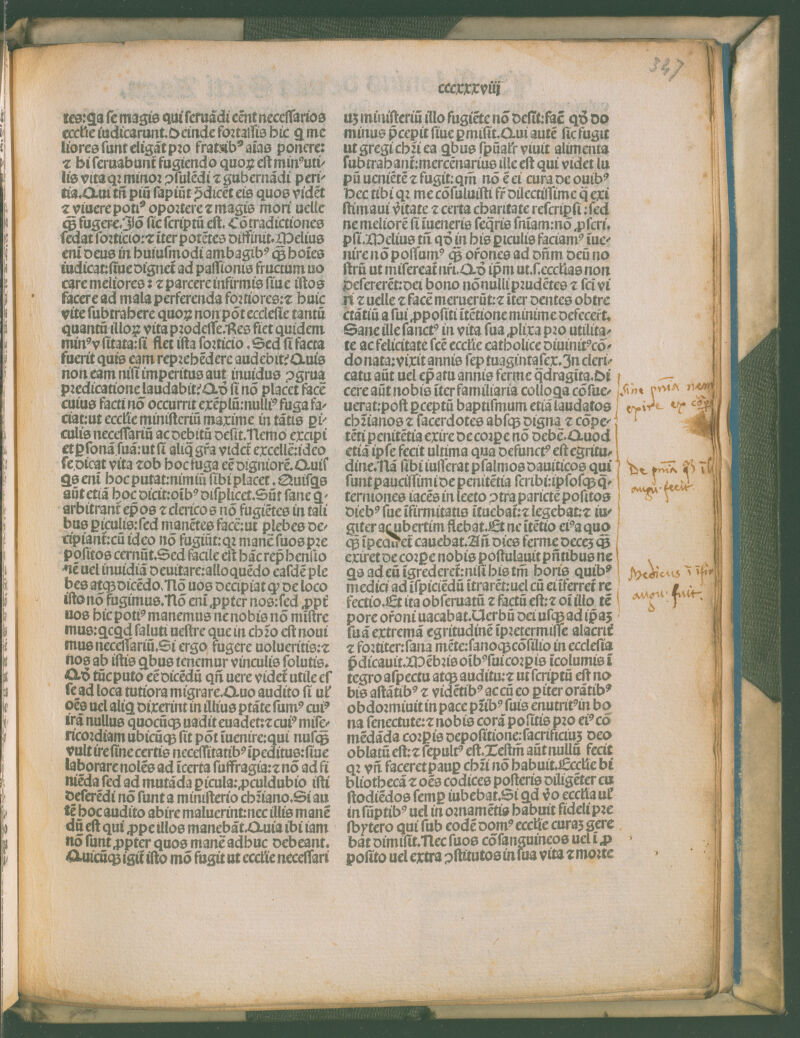 347
cccxxxviij
tes:qa se magis qui seruãdi eẽnt necessarios
ecclie iudicarunt. Deinde fortassis hic q̃ me
liores sunt eligãt pro fratribꝰ aĩas ponere:
⁊ hi seruabunt fugiendo quoꝝ est minꝰ uti-
lis vita qꝛ minoꝛ ꝯsulẽdi ⁊ gubernãdi peri-
tia. Qui tñ piũ sapiũt ꝯ̃dicẽt eis quos vidẽt
⁊ viuere potiꝰ oportere ⁊ magis mori uelle
q̃ȝ fugere. Iõ sic scriptũ est. Cõtradictiones
sedat sorticio:⁊ ĩter potẽtes diffinit. Melius
eni deus in huiusmodi ambagibꝰ q̃ȝ hoĩes
iudicat:siue dignet̃ ad passionis fructum uo
care meliores: ⁊ parcere infirmis siue istos
facere ad mala perferenda fortiores:⁊ huic
vite subtrahere quoꝝ non põt ecclesie tantũ
quantũ illoꝝ vita prodesse. Res fiet quidem
minꝰ vsitata:si fiet ista sorticio. Sed si facta
fuerit quis eam reprehẽdere audebit? Quis
non eam nisi imperitus aut inuidus ꝯgrua
predicatione laudabit? Qđ si nõ placet facẽ
cuius facti nõ occurrit exẽplũ:nulliꝰ fuga fa-
ciat:ut ecclie ministeriũ maxime in tãtis pi-
culis necessariũ ac debitũ desit. Nemo excipi
et psonã suã:ut si aliq̃ gr̃a videt̃ excellẽ:ideo
se dicat vita ⁊ob hoc fuga eẽ digniorẽ. Quis
qs eni hoc putat:nimiũ sibi placet. Quisqs
aũt etiã hoc dicit:oĩbꝰ displicet. Sũt sane q-
arbitrant̃ epõs ⁊ clericos nõ fugiẽtes in tali
bus piculis:sed manẽtes facẽ:ut plebes de-
cipiant:cũ ideo nõ fugiũt:qꝛ manẽ suos pre
positos cernũt. Sed facile est hãc reprehensio
nẽ uel inuidiã deuitare:alloquẽdo easdẽ ple
bes atqȝ dicẽdo. Nõ uos decipiat q̃ de loco
isto nõ fugimus. Nõ eni ꝓpter nos:sed ꝓpt̃
uos hic potiꝰ manemus ne nobis nõ mĩstre
mus:qcqd saluti uestre que in chr̃o est noui
mus necessariũ. Si ergo fugere uolueritis:⁊
nos ab istis qbus tenemur vinculis soluitis.
Qđ tũc puto eẽ dicẽdũ qñ uere videt̃ utile es
se ad loca tutiora migrare. Quo audito si ul̃
oẽs uel aliq dixerint in illius ptãte sumꝰ cuiꝰ
irã nullus quocũqȝ uadit euadet:⁊ cuiꝰ mise-
ricordiam ubicũqȝ sit põt ĩuenire:qui nusqȝ
vult ire siue certis necessitatibꝰ ĩpeditus:siue
laborare nolẽs ad ĩcerta suffragia:⁊ nõ ad fi
niẽda sed ad mutãda picula:ꝓculdubio isti
deserẽdi nõ sunt a ministerio chr̃iano. Si au
tẽ hoc audito abire maluerint:nec illis manẽ
dũ est qui ꝓpe illos manebãt. Quia ibi iam
nõ sunt ꝓpter quos manẽ adhuc debeant.
Quicũqȝ igit̃ isto mõ fugit ut ecclie necessari
uȝ ministeriũ illo fugiẽte nõ desit:facĩt qđ do
minus p̃cepit siue pmisit. Qui autẽ sic fugit
ut gregi chr̃i ea qbus sp̃ualr̃ viuit alimenta
subtrahant̃:mercẽnarius ille est qui videt lu
pũ ueniẽtẽ ⁊ fugit:qm̃ nõ ẽ ei cura de ouibꝰ
Hec tibi qꝛ me cõsuluisti fr̃ dilectissime q̃ exi
stimaui v̾itate ⁊ certa charitate rescripsi: sed
ne meliorẽ si ĩueneris seq̃ris sñiam:nõ p̃scri-
psi. Melius tñ qđ in his piculis faciamꝰ ĩue-
nire nõ possumꝰ q̃ȝ or̃ones ad dñm deũ no
strũ ut misereat̃ nr̃i. Qđ ip̃m ut.s.ecclias non
desererẽt:dei bono nõnulli prudẽtes ⁊ sc̃i vi
ri ⁊ uelle ⁊ facẽ meruerũt:⁊ ĩter dentes obtre
ctãtiũ a sui ꝓpositi ĩtẽtione minime defecert̃.
Sane ille sanctꝰ in vita sua ꝓlixa pro utilita-
te ac felicitate sc̃e ecclie catholice diuinitꝰ cõ-
donata:vixit annis septuagintasex. In cleri-
catu aũt uel ep̃atu annis ferme q̃dragĩta. Di
cere aũt nobis ĩter familiaria colloqa cõsue-
uerat:post pceptũ baptismum etiã laudatos
chr̃ianos ⁊ sacerdotes absqȝ digna ⁊ cõpe-
tẽti penitẽtia exire de corpe nõ debẽ. Quod
etiã ipse fecit ultima qua defunctꝰ est egritu-
dine. Nã sibi iusserat psalmos dauiticos qui
sunt paucissimi de penitẽtia scribi:ipsosqȝ q-
terniones iacẽs in lecto ꝯtra parietẽ positos
diebꝰ sue ĩfirmitatis ĩtuebat̃:⁊ legebat:⁊ iu-
giter ac ubertim flebat. Et ne ĩtẽtio eiꝰ a quo
q̃ȝ ĩpediret̃ cauebat. Añ dies ferme decez qȝ
exiret de corpe nobis postulauit p̃ntibus ne
qs ad eũ ĩgrederet̃:nisi his tm̃ horis quibꝰ
medici ad ĩspiciẽdũ ĩtrarẽt:uel cũ ei ĩferret̃ re
fectio. Et ita obseruatũ ⁊ factũ est:⁊ oĩ illo tẽ
pore or̃oni uacabat. Uerbũ dei usqȝ ad ip̃aȝ
suã extremã egritudinẽ ĩpretermisse alacrit̾
⁊ fortiter:sana mẽte:sanoqȝ cõsilio in ecclesia
p̃dicauit. Mẽbris oĩbꝰ sui corpis ĩcolumis ĩ
tegro aspectu atqȝ auditu:⁊ ut scriptũ est no
bis astãtibꝰ ⁊ vidẽtibꝰ ac cũ eo piter orãtibꝰ
obdormiuit in pace pr̃ibꝰ suis enutritꝰ in bo
na senectute:⁊ nobis corã positis pro eiꝰ cõ
mẽdãda corpis depositione:sacrificiuȝ deo
oblatũ est:⁊ sepultꝰ est. Testm̃ aũt nullũ fecit
qꝛ vñ faceret paup chr̃i nõ habuit. Ecclie bi
bliothecã ⁊ oẽs codices posteris diligẽter cu
stodiẽdos semp iubebat. Si qd v̾o ecclia ul̃
in sũptibꝰ uel in ornamẽtis habuit fideli pre
sbytero qui sub eodẽ domꝰ ecclie curaȝ gere
bat dimisit. Nec suos cõsanguineos uel ĩ ꝓ
posito uel extra ꝯstitutos in sua vita ⁊ morte
sine pnia nem
exire ex corp
De pnia
augu. fecit.
Medicus
augu. fuit.